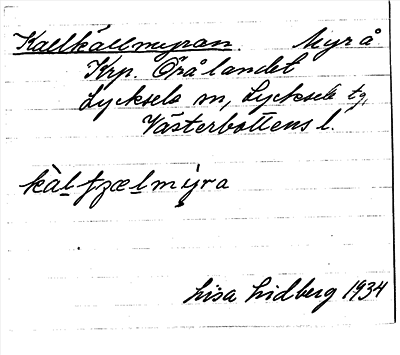 Kallkällmyran. Myr å
Krp. Örålandet
Lycksele m, Lycksele tg,
Västerbottens l.
kàl̲ʃzæl̲my̲ra
Lisa Lidberg 1934